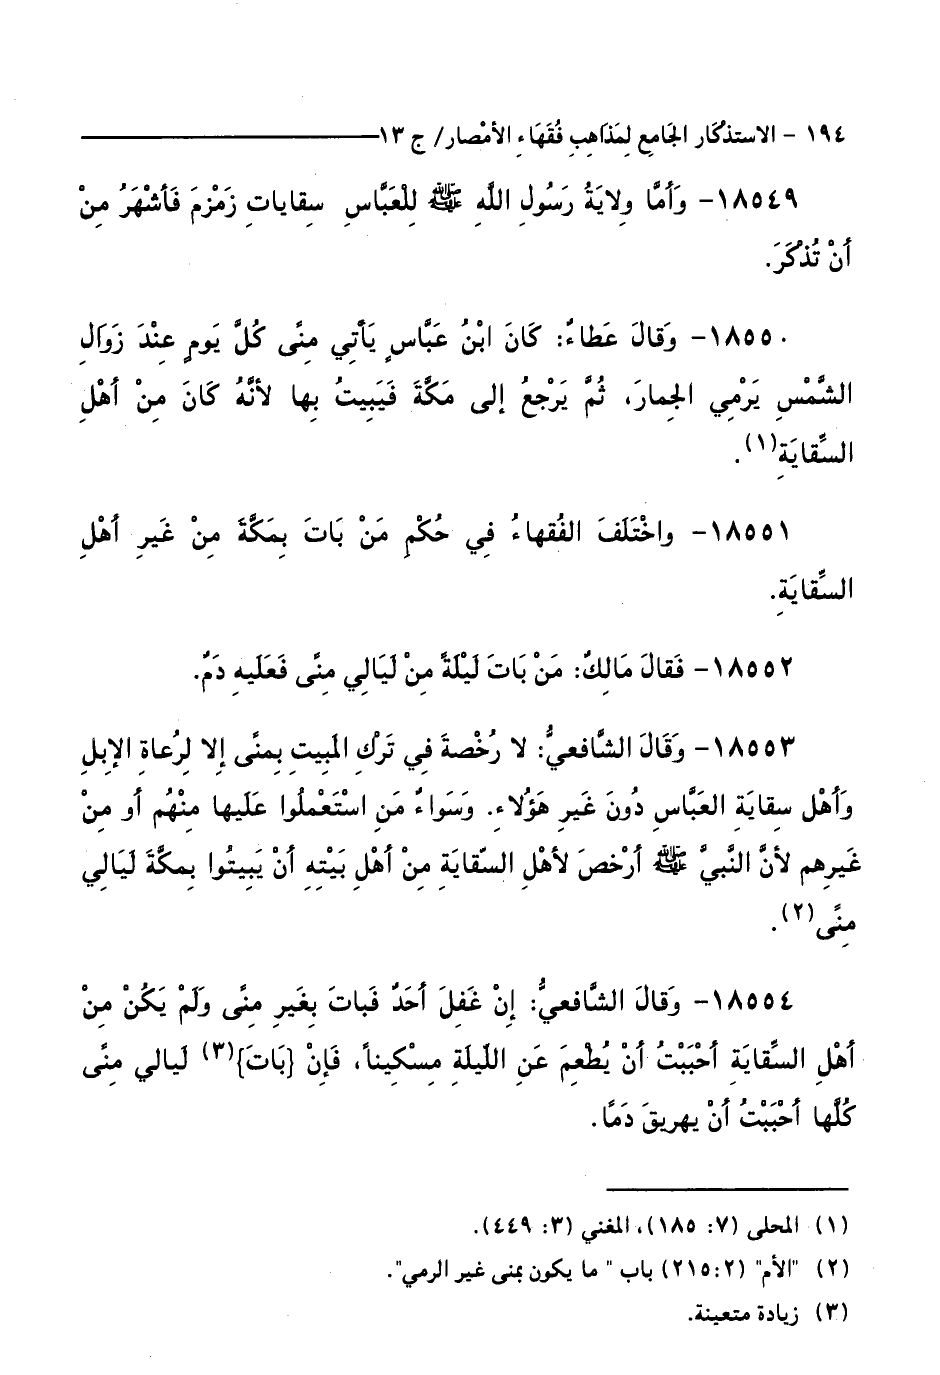 ١٩٤ - الاستذكار الجَامع لِمَذاهِبِ فُقَهاءِ الأمْصار/ ج ١٣
١٨٥٤٩- وَأَمَّا وِلايَةُ رَسُولِ اللَّهِ ﷺ لِلْعَبَّاسِ سِقايات زَمْزمَ فَأَشْهَرُ مِنْ
أَنْ تُذْكَرَ.
١٨٥٥٠- وَقالَ عَطاءٌ: كَانَ ابْنُ عَبَّاسٍ يَأْتِي مِنًى كُلَّ يَومٍ عِنْدَ زَوَالِ
الشَّمْسِ يَرْمِي الجِمارَ، ثُمَّ يَرْجِعُ إِلى مَكَّةَ فَيَبِيتُ بِها لأنَّهُ كَانَ مِنْ أَهْلِ
السِّقايَةِ(١).
١٨٥٥١- واخْتَلَفَ الفُقهاءُ فِي حُكْمِ مَنْ بَاتَ بِمَكَّةَ مِنْ غَيرِ أَهْلِ
السِّقايَةِ.
١٨٥٥٢- فَقالَ مَالِكٌ: مَنْ بَاتَ لَيْلَةً مِنْ لَيَالِي مِنًى فَعَلَيهِ دَمٌ.
١٨٥٥٣- وَقَالَ الشَّافعيُّ: لا رُخْصةَ فِي تَرْكِ المَبِيتِ بِمنًى إِلا لِرُعاةِ الإِبِلِ
وَأَهْلِ سِقايَةِ العَبَّاسِ دُونَ غَيرِ هَؤُلاءِ. وَسَواءٌ مَنِ اسْتَعْملُوا عَلَيها مِنْهُم أو مِنْ
غَيرِهِم لأنَّ النَّبيَّ ﷺ أَرْخصَ لأهْلِ السّقايَةِ مِنْ أهْلِ بَيْتِهِ أنْ يَبِيتُوا بِمكَّةَ لَيَالِي
مِنًى(٢).
١٨٥٥٤- وَقالَ الشَّافعيُّ: إِنْ غَفلَ أَحَدٌ فَباتَ بِغَيرِ مِنًى وَلَمْ يَكُنْ مِنْ
أَهْلِ السِّقايَةِ أَحْبَبْتُ أَنْ يُطْعِمَ عَنِ اللّيلَةِ مِسْكيناً، فَإِنْ {بَاتَ}(٣) لَيالي مِنًى
كُلَّها أَحْبَبْتُ أَنْ يهريقَ دَمًا.
(١) المحلى (٧: ١٨٥)، المغني (٣: ٤٤٩).
(٢) "الأم" (٢:٢١٥) باب " ما يكون بمنى غير الرمي".
(٣) زيادة متعينة.